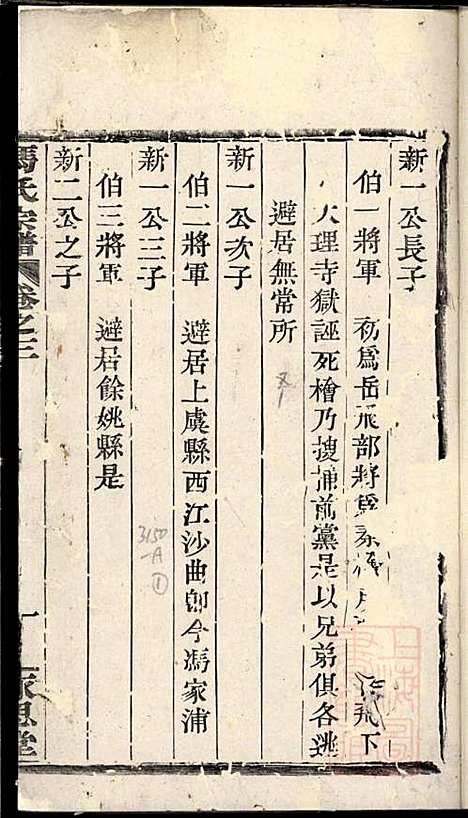 新一公長子
伯一將軍 初爲岳飛部將
飛下
大理寺獄誣死檜乃搜捕前黨是以兄弟俱各逃
避居無常所
新一公次子
伯二將軍 避居上虞縣西江沙曲卽今馮家浦
新一公三子
伯三將軍 避居餘姚縣是
新二公之子
馮氏宗譜 卷之三
3150
-A
①